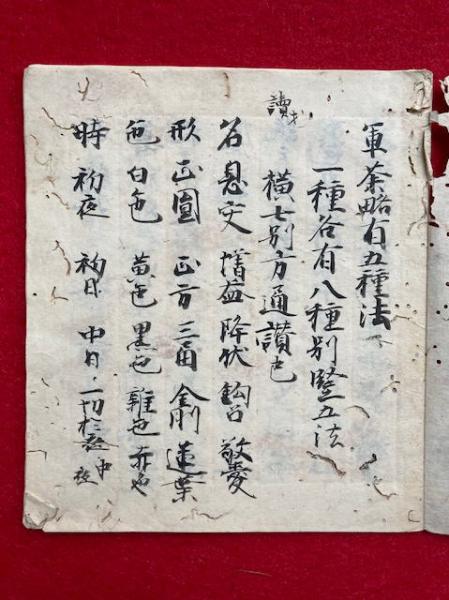 軍荼略有五種法
一種各有八種別竪五法
横七別方通讃也
讀
名 息災 増益 降伏 鈎召 敬愛
形 正圓 正方 三角 金剛 蓮葉
色 白色 黄色 黒色 雜色 赤色
時 初夜 初日 中日 一切 中夜